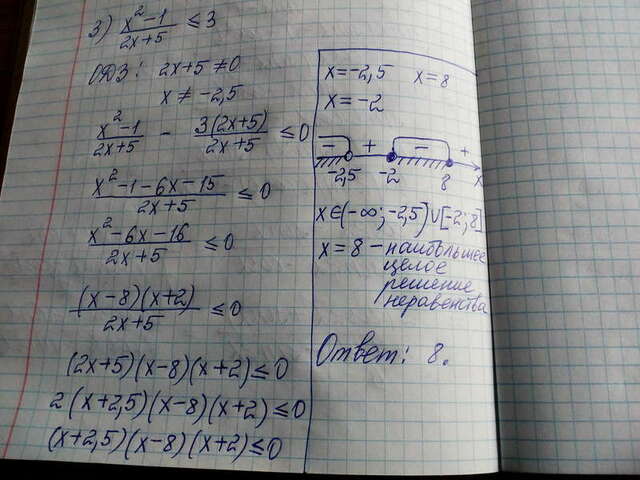 3) (x²-1)/(2x+5) ≤ 3
ОДЗ: 2x+5 ≠ 0
x ≠ -2,5
(x²-1)/(2x+5) - 3(2x+5)/(2x+5) ≤ 0
(x²-1-6x-15)/(2x+5) ≤ 0
(x²-6x-16)/(2x+5) ≤ 0
(x-8)(x+2)/(2x+5) ≤ 0
(2x+5)(x-8)(x+2) ≤ 0
2(x+2,5)(x-8)(x+2) ≤ 0
(x+2,5)(x-8)(x+2) ≤ 0
x=-2,5 x=8
x=-2
- + - +
-2,5 -2 8 x
x∈(-∞; -2,5)∪[-2; 8]
x=8 - наибольшее
целое
решение
неравенства
Ответ: 8.